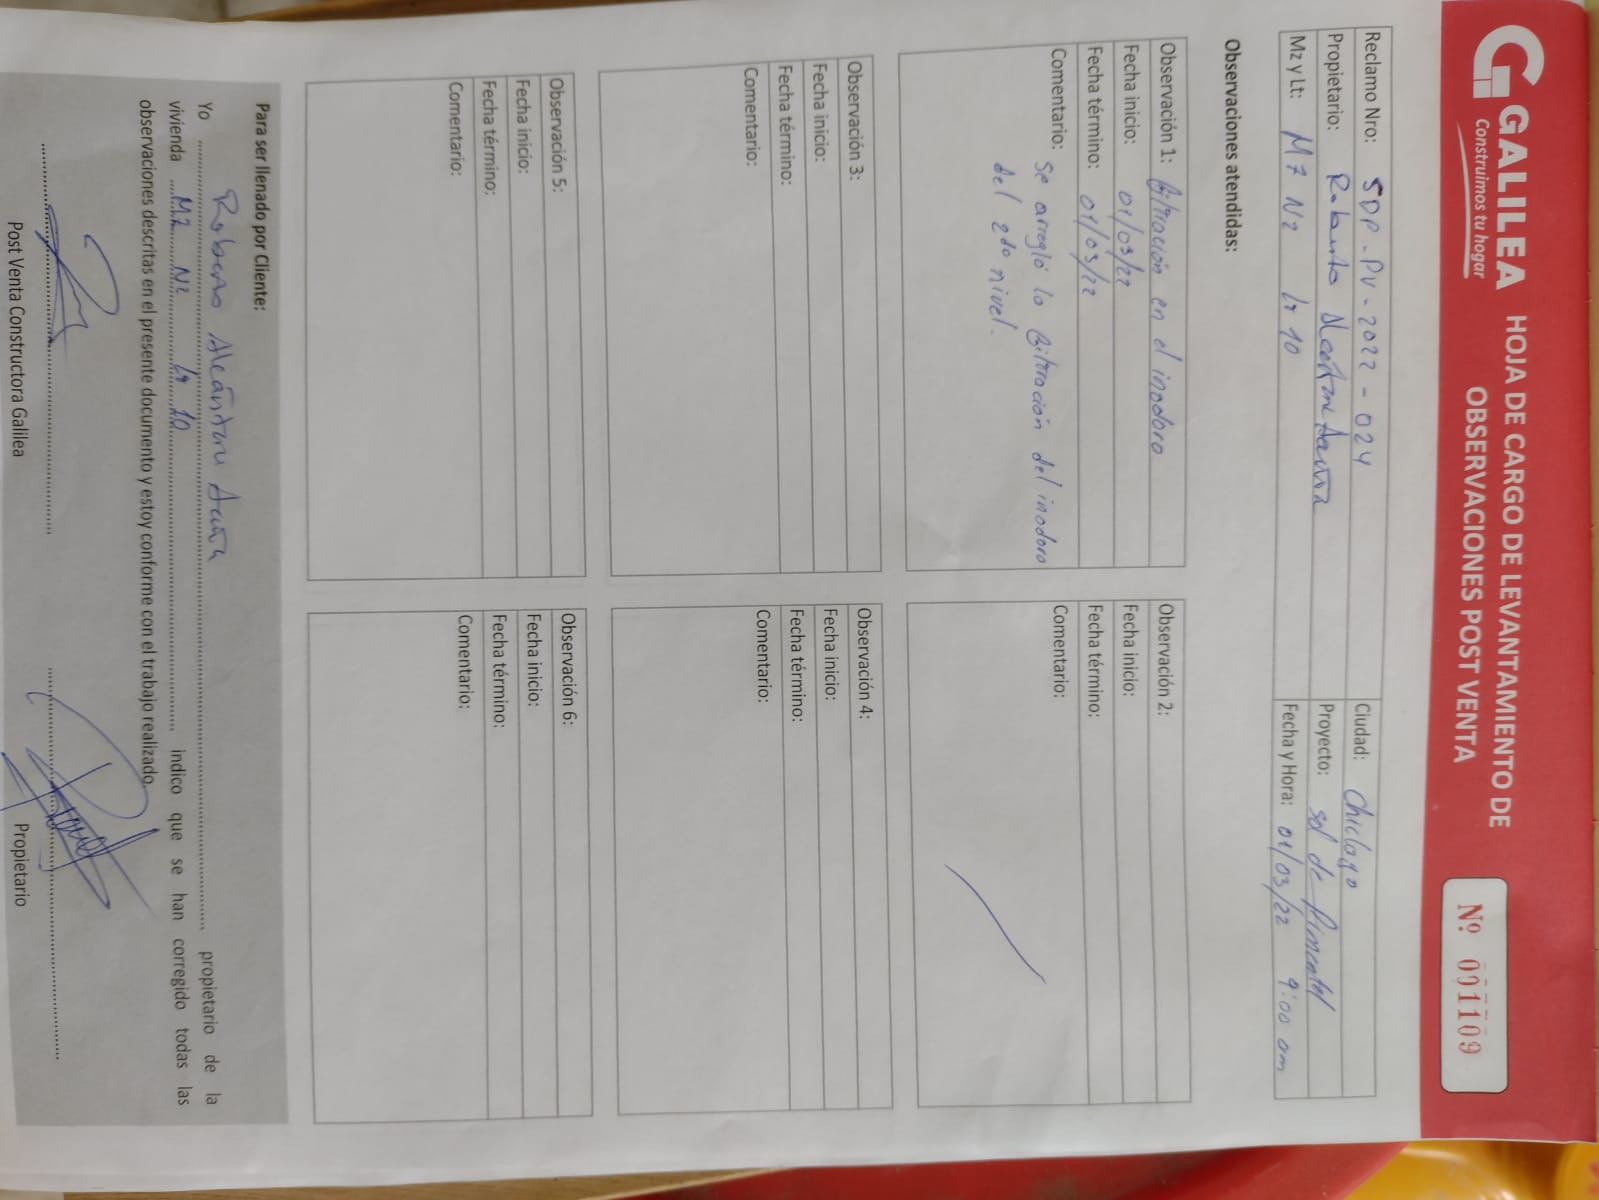 GALILEA
Construimos tu hogar
HOJA DE CARGO DE LEVANTAMIENTO DE
OBSERVACIONES POST VENTA
Nº 001109
Reclamo Nro: SDP-PV-2022-024
Ciudad: Chiclayo
Propietario: Roberto Alcántara
Proyecto: Sol de Pimentel
Mz y Lt: Mz N2 Lt 10
Fecha y Hora: 01/03/22 9:00 am
Observaciones atendidas:
Observación 1: filtración en el inodoro
Fecha inicio: 01/03/22
Fecha término: 01/03/22
Comentario: Se arregló la filtración del inodoro
del 2do nivel.
Observación 2:
Fecha inicio:
Fecha término:
Comentario:
Observación 3:
Fecha inicio:
Fecha término:
Comentario:
Observación 4:
Fecha inicio:
Fecha término:
Comentario:
Observación 5:
Fecha inicio:
Fecha término:
Comentario:
Observación 6:
Fecha inicio:
Fecha término:
Comentario:
Para ser llenado por Cliente:
Yo Roberto Alcántara propietario de la
vivienda Mz N2 Lt 10 indico que se han corregido todas las
observaciones descritas en el presente documento y estoy conforme con el trabajo realizado.
Post Venta Constructora Galilea
Propietario